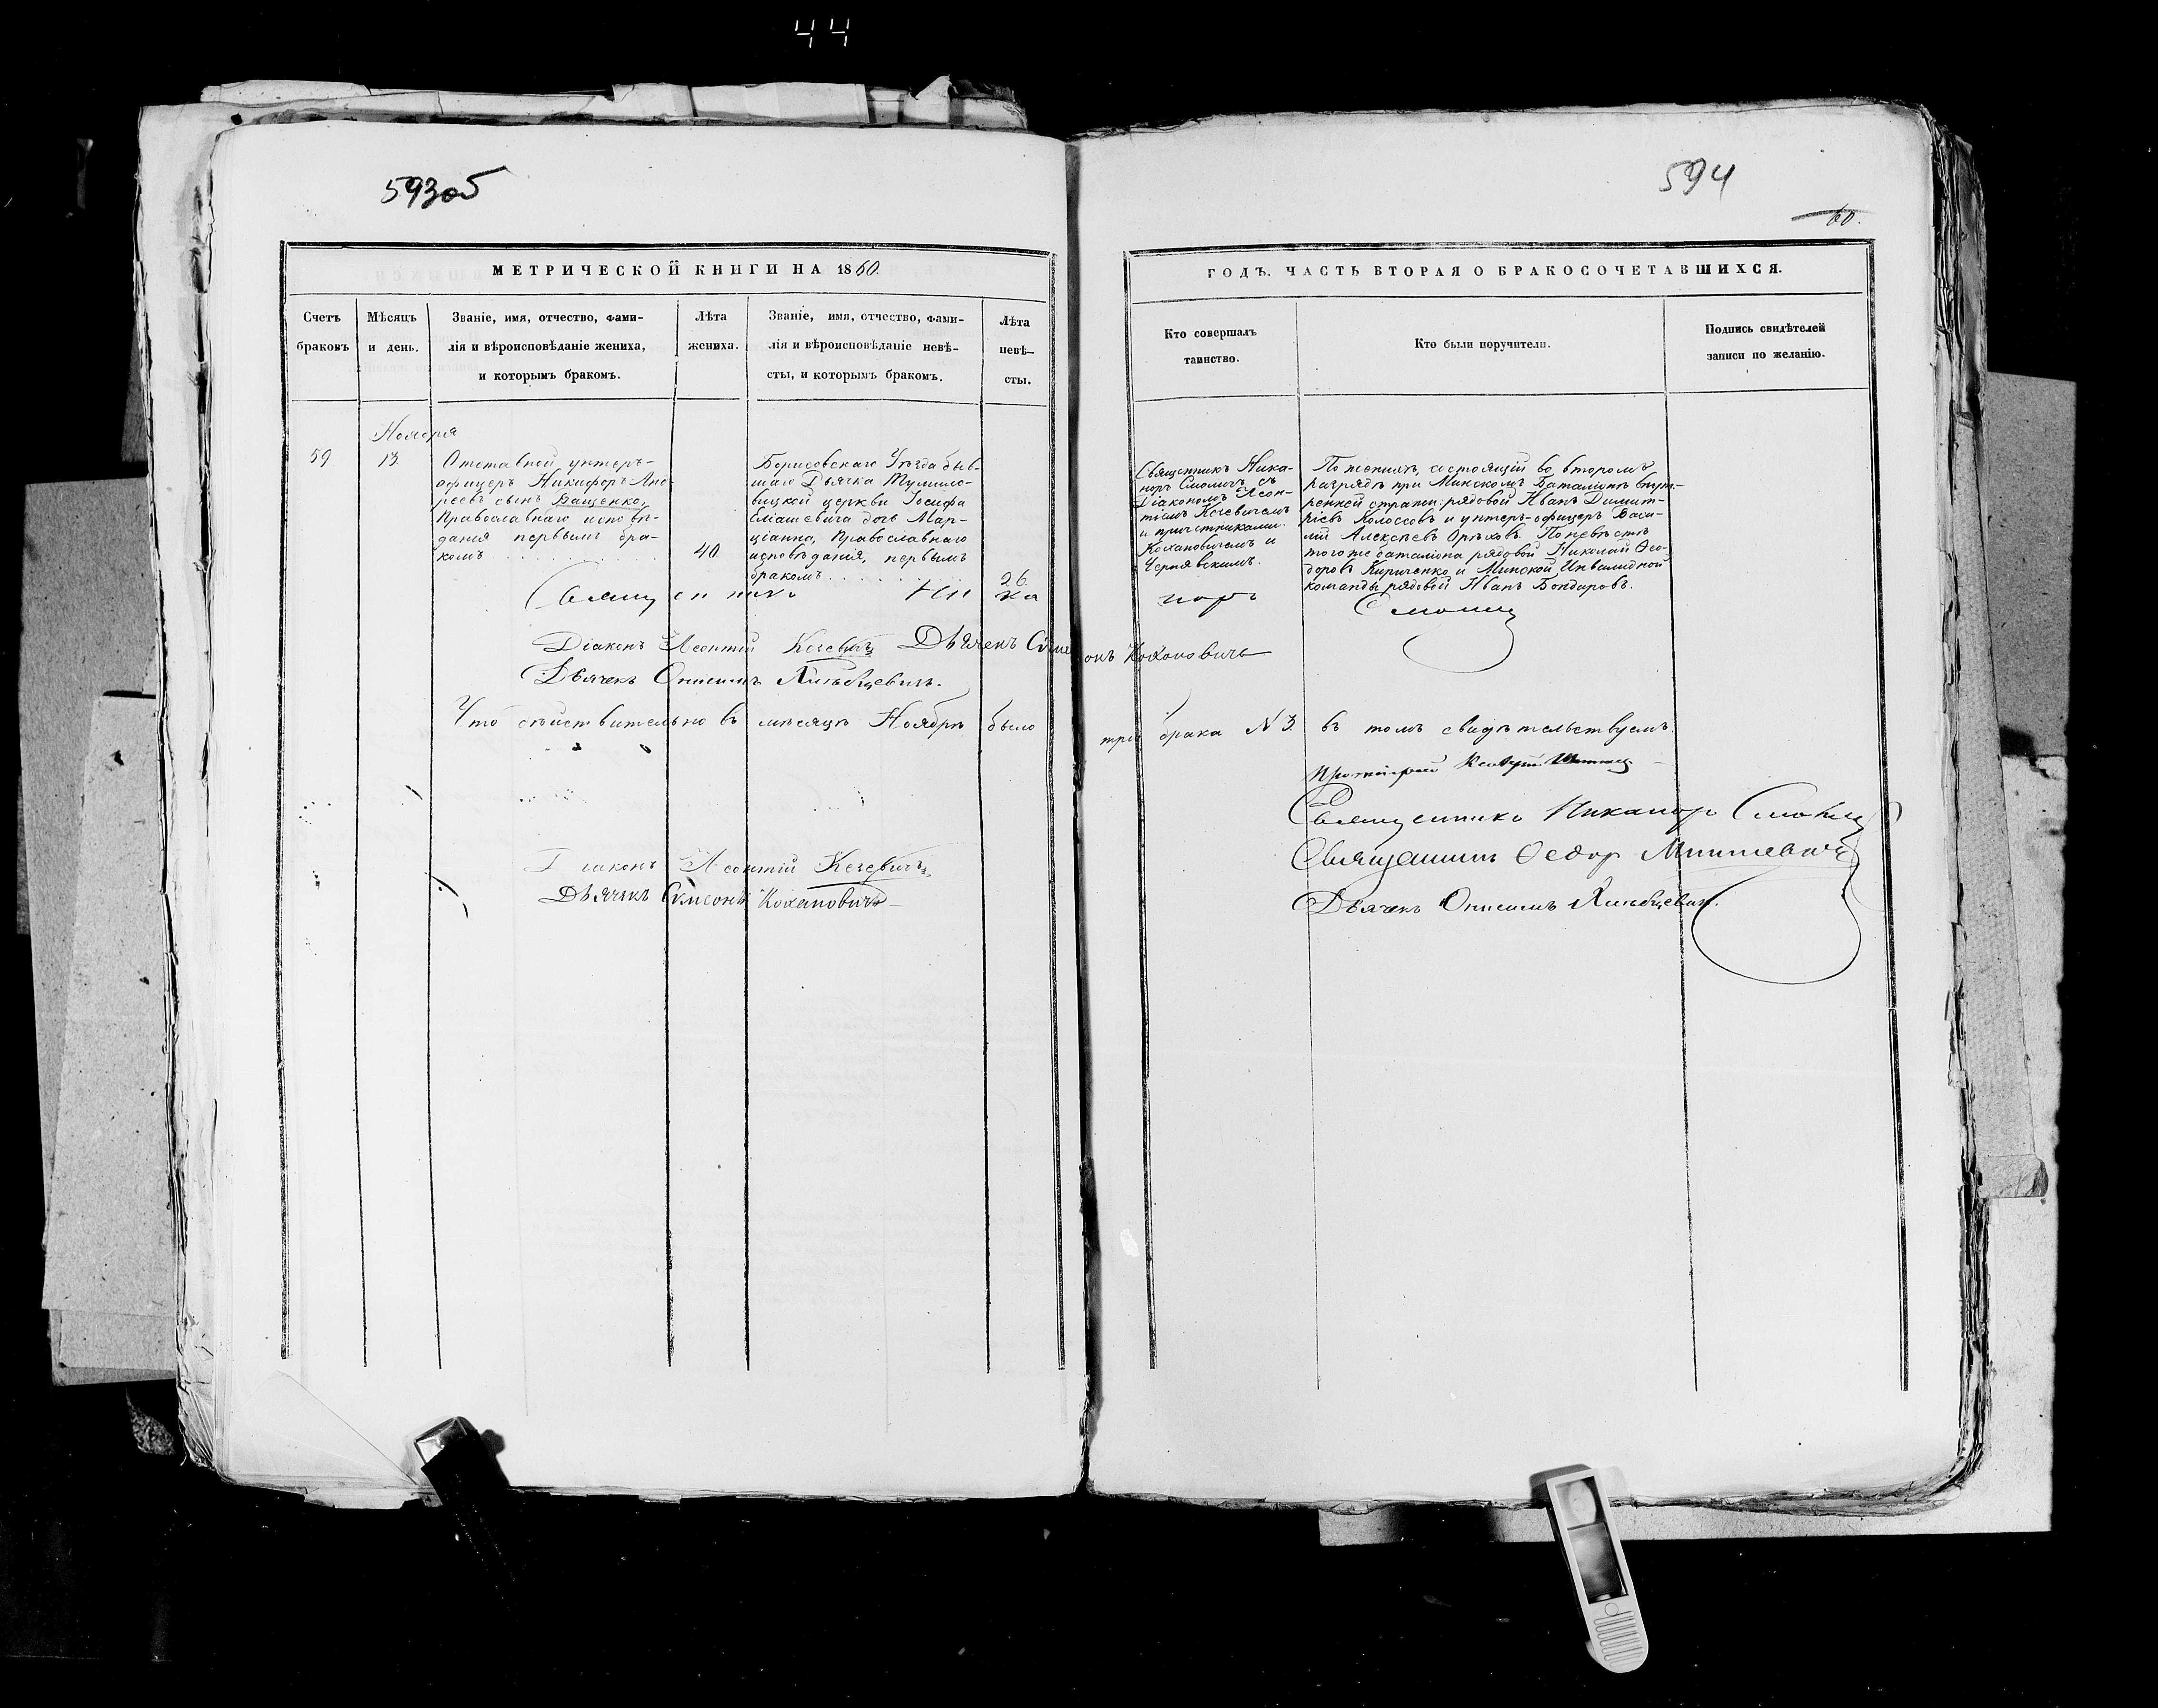 44
593об
594
60.
МЕТРИЧЕСКОЙ КНИГИ НА 1860.
ГОДЪ. ЧАСТЬ ВТОРАЯ О БРАКОСОЧЕТАВШИХСЯ.
Счетъ
браковъ
Мѣсяцъ
и день.
Званіе, имя, отчество, фами-
лія и вѣроисповѣданіе жениха,
и которымъ бракомъ.
Лѣта
жениха.
Званіе, имя, отчество, фами-
лія и вѣроисповѣданіе невѣ-
сты, и которымъ бракомъ.
Лѣта
невѣ-
сты.
Кто совершалъ
таинство.
Кто были поручители.
Подпись свидѣтелей
записи по желанію.
59
Ноября
13.
Отставной унтеръ-
офицеръ Никифоръ Анд-
реевъ сынъ Ващенко,
Православнаго исповѣ-
данія первымъ бра-
комъ
40
Борисовскаго Уѣзда быв-
шаго Дьячка Тумило-
вицкой церкви Іосифа
Еліашевича дочь Мар-
ціанна, Православнаго
исповѣданія, первымъ
бракомъ
26.
Священникъ Ника-
норъ Смоличъ съ
Діакономъ Леон-
тіемъ Кечевичемъ
и причетниками
Кохановичемъ и
Чернявскимъ.
По женихѣ, состоящій во второмъ
разрядѣ при Минскомъ Баталіонѣ внут-
ренней стражи: рядовой Иванъ Димит-
ріевъ Колосовъ и унтеръ-офицеръ Васи-
лій Алексѣевъ Орѣховъ. По невѣстѣ
того же баталіона рядовой Николай Ѳео-
доровъ Кириченко и Минской Инвалидной
команды рядовой Иванъ Бондаровъ.
Священникъ Никаноръ Смоличъ
Діаконъ Леонтій Кечевичъ Дьячекъ Симеонъ Кохановичъ
Дьячекъ Онисимъ
Что дѣйствительно въ мѣсяцѣ Ноябрѣ было три брака N 3. въ томъ свидѣтельствуемъ.
Протоіерей
Священникъ Никаноръ Смоличъ
Священникъ Ѳеодор
Діаконъ Леонтій Кечевичъ
Дьячекъ Симеонъ Кохановичъ
Дьячекъ Онисимъ